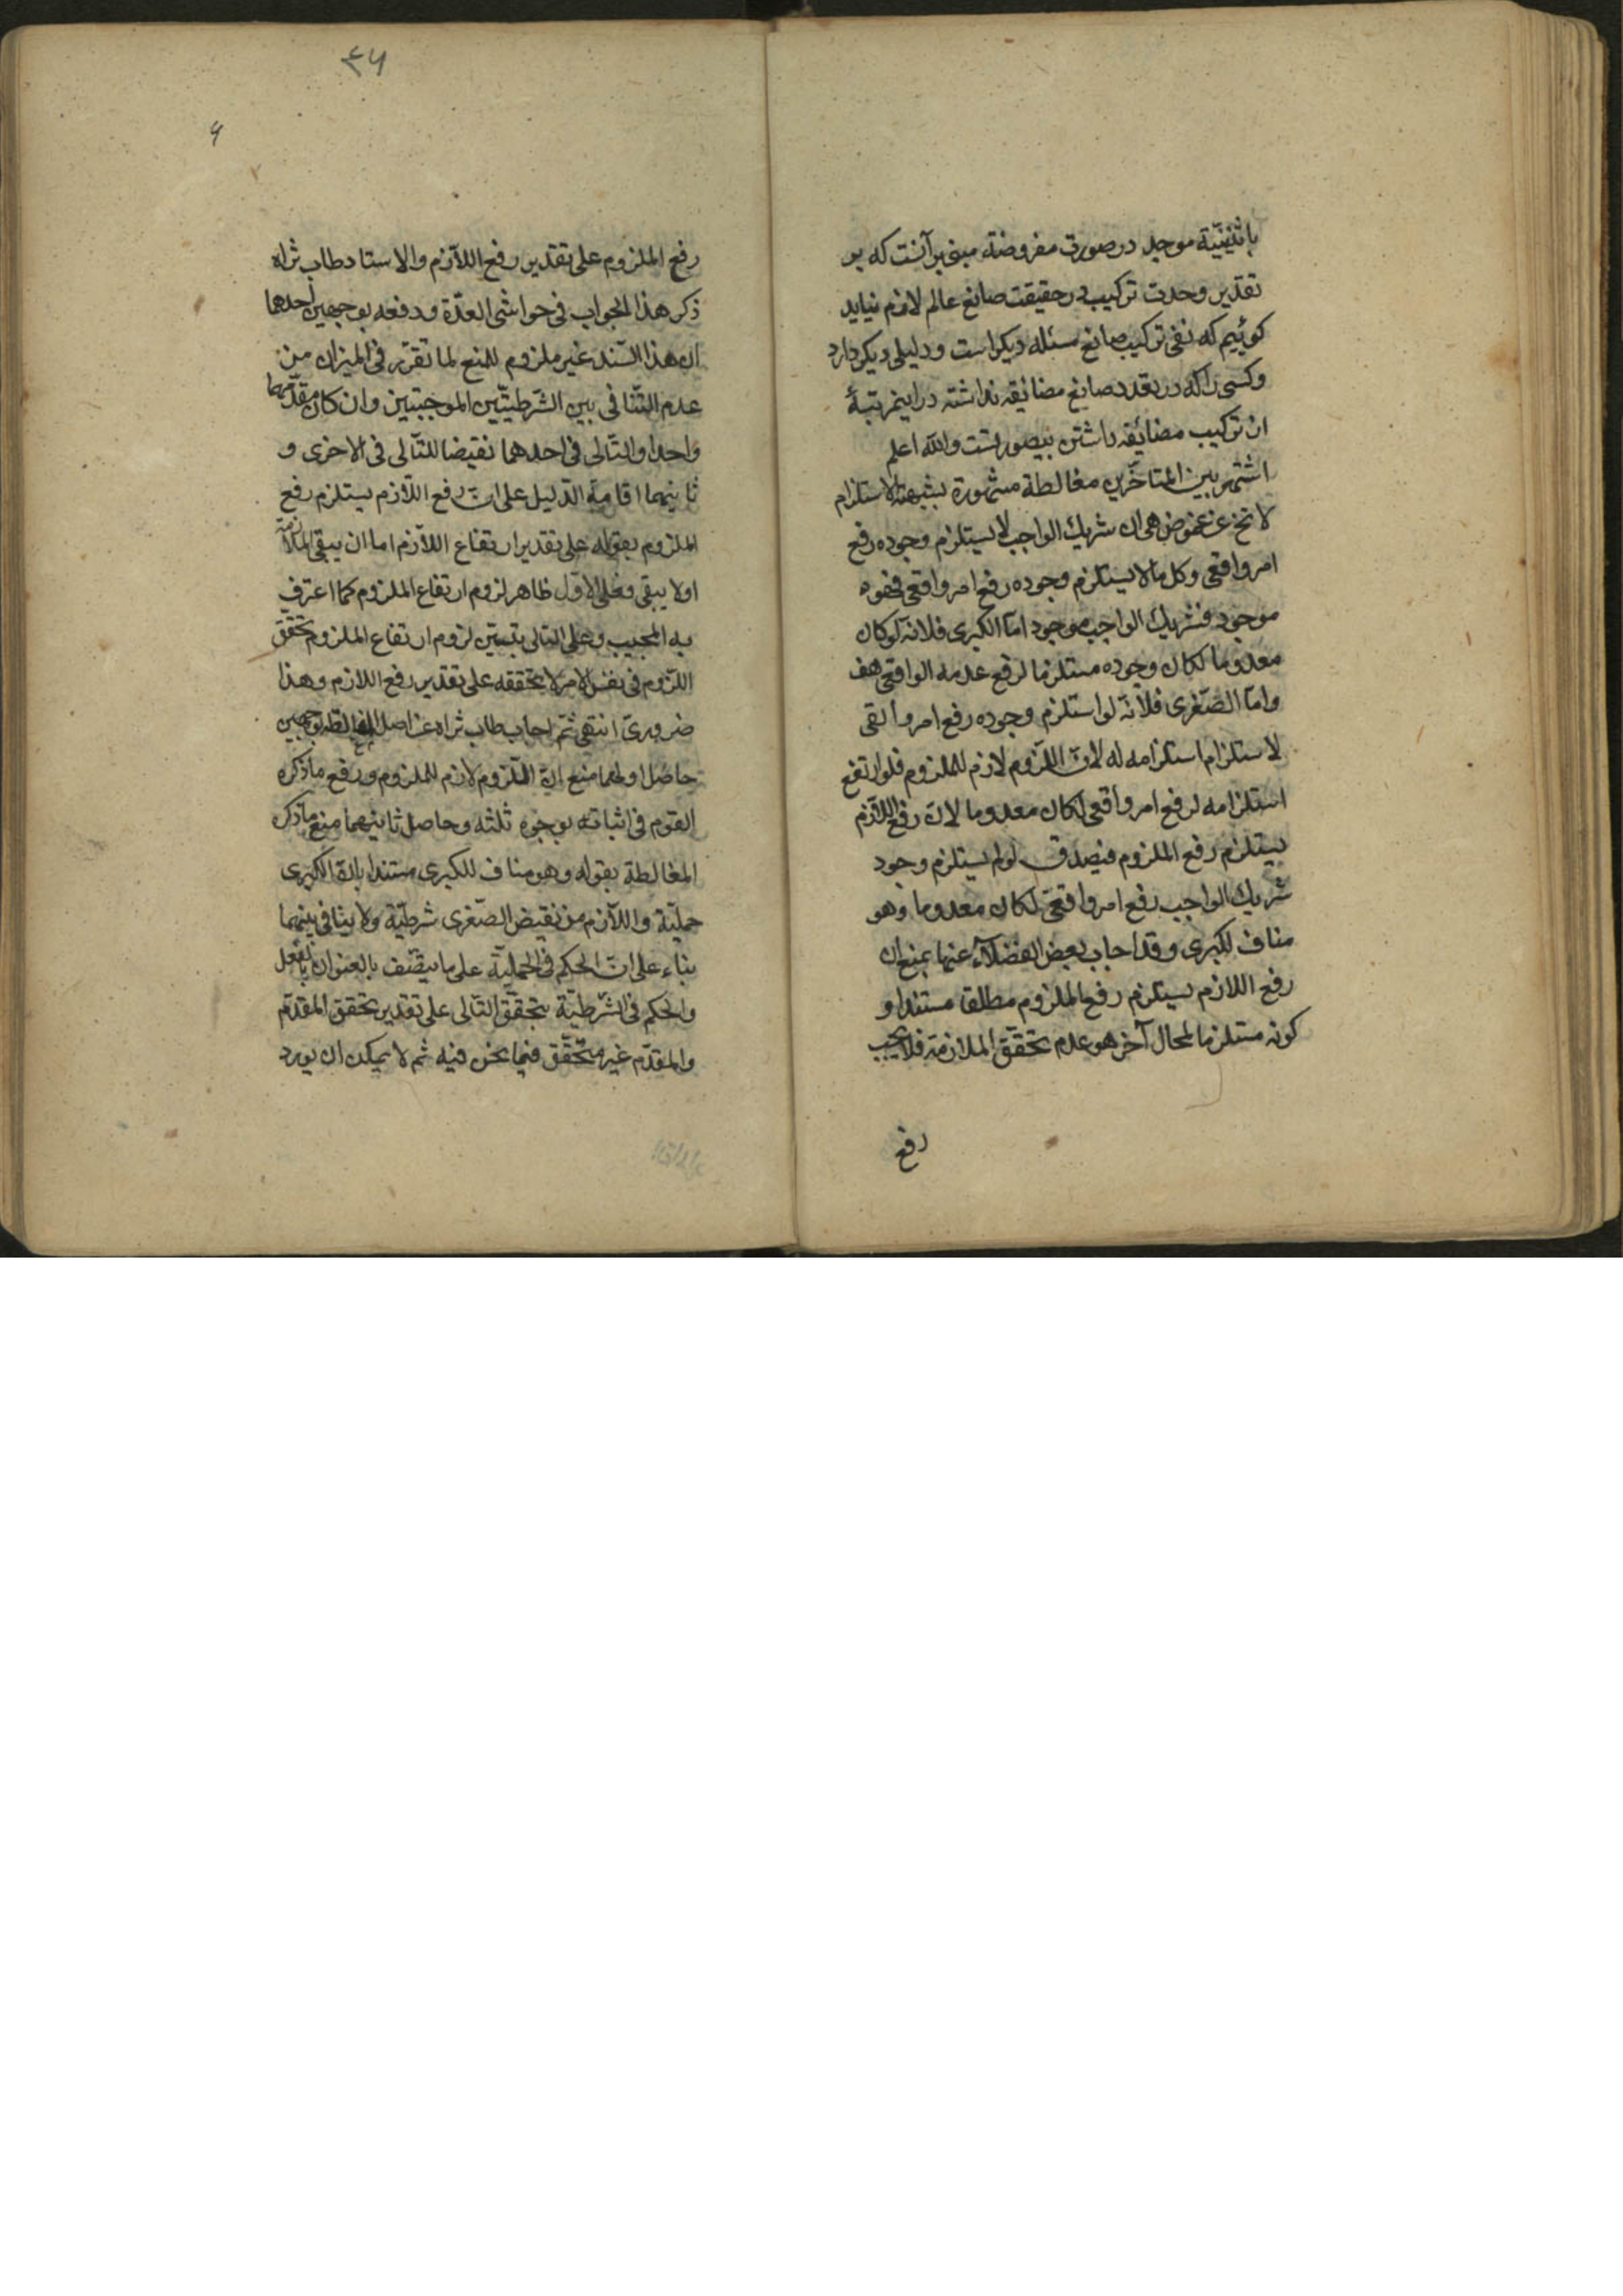 باثنینیّة موجد در صورت مفروضة مبنی بر آنست که بر
تقدیر وحدت ترکیب در حقیقت صانع عالم لازم نیاید
کوئیم که نفی ترکیب صانع مسئله دیکر است ودلیلی دیکر دارد
وکسی را که در تعدد صانع مضائقه نداشته در اینمرتبهٔ
ان ترکیب مضائقه داشتن بیصورتست والله اعلم
اشتهر بین المتاخّرین مغالطة مشهورة بشبهة الاستلزام
لا تخ عن غموض هی ان شریك الواجب لا یستلزم وجوده رفع
امر واقعی وکل ما لا یستلزم وجوده رفع امر واقعی فهو
موجود فشریك الواجب موجود امّا الکبری فلانّه لو کان
معدوما لکان وجوده مستلزما لرفع عدمه الواقعی هف
وامّا الصّغری فلانّه لو استلزم وجوده رفع امر واقعی
لاستلزام استلزامه له لانّ اللّزوم لازم للملزوم فلو ارتفع
استلزامه لرفع امر واقعی لکان معدوما لانّ رفع اللّازم
یستلزم رفع الملزوم فیصدق لو لم یستلزم وجود
شریك الواجب رفع امر واقعیّ لکان معدوما وهو
مناف لکبری وقد اجاب بعض الفضلآء عنها بمنع ان
رفع اللازم یستلزم رفع الملزوم مطلقا مستندا و
کونه مستلزما لمحال آخر هو عدم تحقّق الملازمة فلا یجب
رفع
۴۶
۶
رفع الملزوم علی تقدیر رفع اللّازم والاستاد طاب ثراه
ذکر هذا الجواب فی حواشی العدّة ودفعه بوجهین احدهما
ان هذا السّند غیر ملزوم للمنع لما تقرّر فی المیزان من
عدم التّنافی بین الشّرطیّتین الموجبتین وان کان مقدّمهما
واحدا والتالی فی احدهما نقیضا للتّالی فی الاخری و
ثانیهما اقامة الدّلیل علی انّ رفع اللّازم یستلزم رفع
الملزوم بقوله علی تقدیر ارتفاع اللّازم اما ان یبقی الملازمة
اولا یبقی وعلی الاوّل ظاهر لزوم ارتفاع الملزوم کما اعترف
به المجیب وعلی الثانی یتبیّن لزوم ارتفاع الملزوم تحقّق
اللّزوم فی نفس الامر لا تحققه علی تقدیر رفع اللازم وهذا
ضروریّ انتهی ثمّ اجاب طاب ثراه عن اصل المغالطة بوجهین
حاصل اولهما منع انّ اللّزوم لازم للملزوم ورفع ما ذکره
القوم فی اثباته بوجوه ثلثه وحاصل ثانیهما منع ما ذکره
المغالطة بقوله وهو مناف للکبری مستندا بانّ الکبری
حملیّة واللّازم من نقیض الصّغری شرطیّة ولا ینافی بینهما
بناء علی انّ الحکم فی الحملیّة علی ما یتّصف بالعنوان بالفعل
والحکم فی الشّرطیّة بتحقّق التّالی علی تقدیر تحقق المقدّم
والمقدّم غیر متحقّق فیما نحن فیه ثم لا یمکن ان یورد